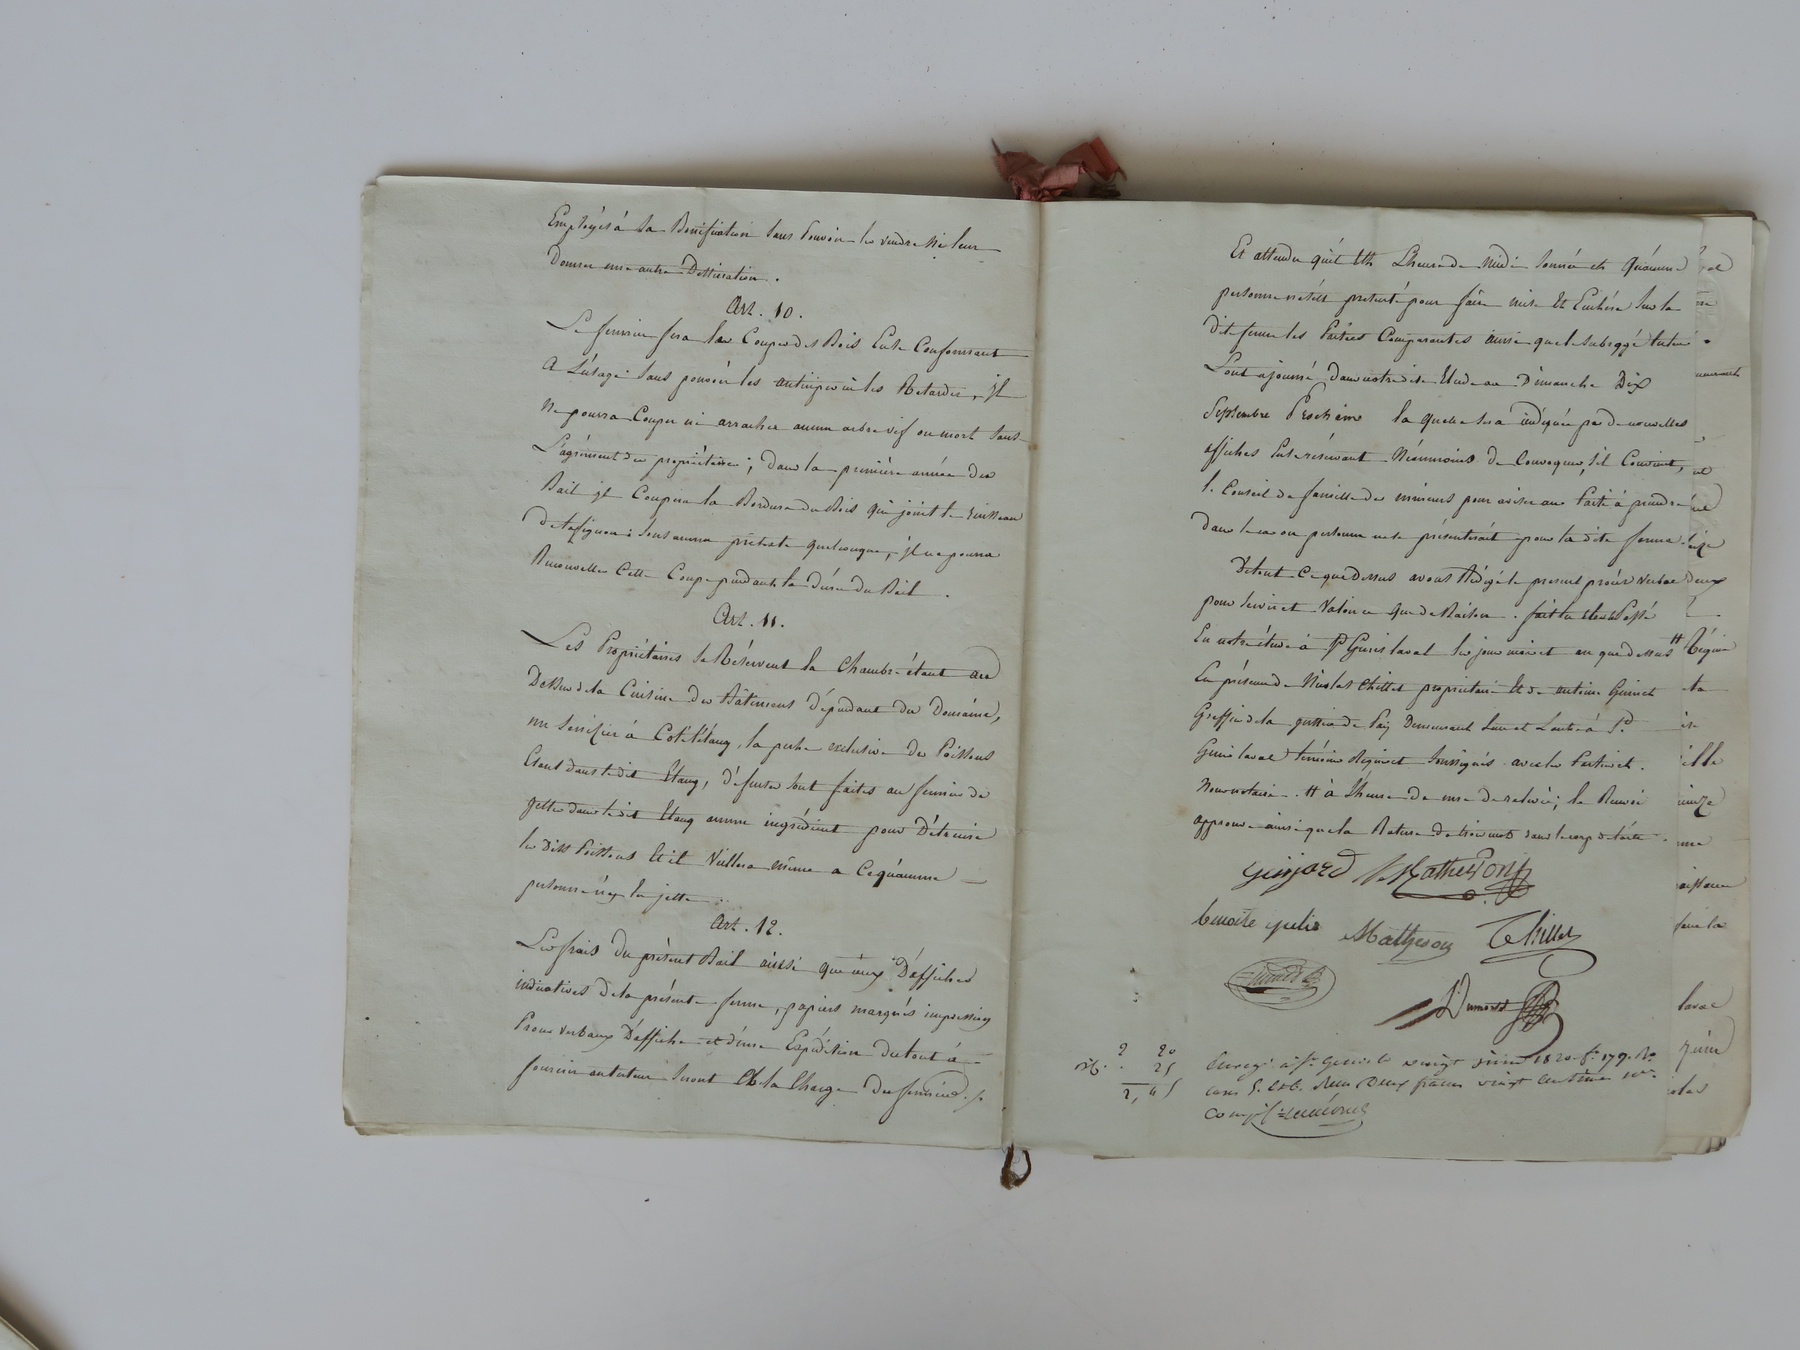 Employés à sa Bonification sans Pouvoir les vendre ni leur
Donner une autre Destination.
Art. 10.
Le fermier fera les Coupes des Bois En se Conformant
A L'usage sans pouvoir les anticiper ni les Retarder, il
Ne pourra Couper ni arracher aucun arbre vif ou mort sans
L'agrément des propriétaires; dans la première année du
Bail il Coupera la Bordure du Bois qui joint le ruisseau
sous aucun prétexte quelconque, il ne pourra
Renouveller Cette Coupe pendant la Durée du Bail.
Art. 11.
Les Propriétaires se Réservent la Chambre étant au
Dessus de la Cuisine des Bâtimens dépendant du Domaine,
un à Coté l'étang, la pêche exclusive des Poissons
Etant dans le dit Etang, défenses sont faites au fermier de
jetter dans le dit Etang aucun ingrédient pour Détruire
les Dits Poissons Et il Veillera même a Ce qu'aucune
personne n'en jette.
Art. 12.
Les frais du présent Bail ainsi que ceux D'affiches
indicatives de la présente ferme, papiers marqués impression
Procès verbaux D'affiche et d'une Expédition du tout à
fournir au tuteur Seront A la Charge du fermier./.
Et attendu qu'il Est L'heure de Midi sonnée et Qu'aucune
personne ne s'est présenté pour faire mise Et Enchère Sur la
Dite ferme les Parties Comparantes ainsi que le subrogé tuteur
L'ont ajourné Dans notre dite Etude au Dimanche Dix
Septembre Prochain la quelle sera indiquée par de nouvelles
affiches Se réservant Néanmoins de Convoquer, s'il Convient,
le Conseil de famille des mineurs pour aviser au Parti à prendre
Dans le cas ou personne ne se présenterait pour la dite ferme
De tout Ce que Dessus avons Rédigé le présent procès verbal
pour Servir et Valoir Ce que de Raison. fait lu Et Passé
En notre étude à St Genis laval les jour mois et an que dessus #
En présence de Nicolas Thillet propriétaire Et de antoine Guinet
Greffier de la justice de Paix Demeurant L'un et L'autre à St
Genis laval témoins Requis et Soussignés avec les Parties et
Nous notaire. # à L'heure de une de relevée; le Renvoi
approuvé ainsi que la Rature de trois mots dans le corps de l'acte.
Guijard Matheron
benoite Matheron Thillet
Dumond
2 20
25
2, 45
Enregé à St Genis le vingt juin 1820 fo 179. Ro
cases 5. et 6. Reçu Deux francs vingt centimes